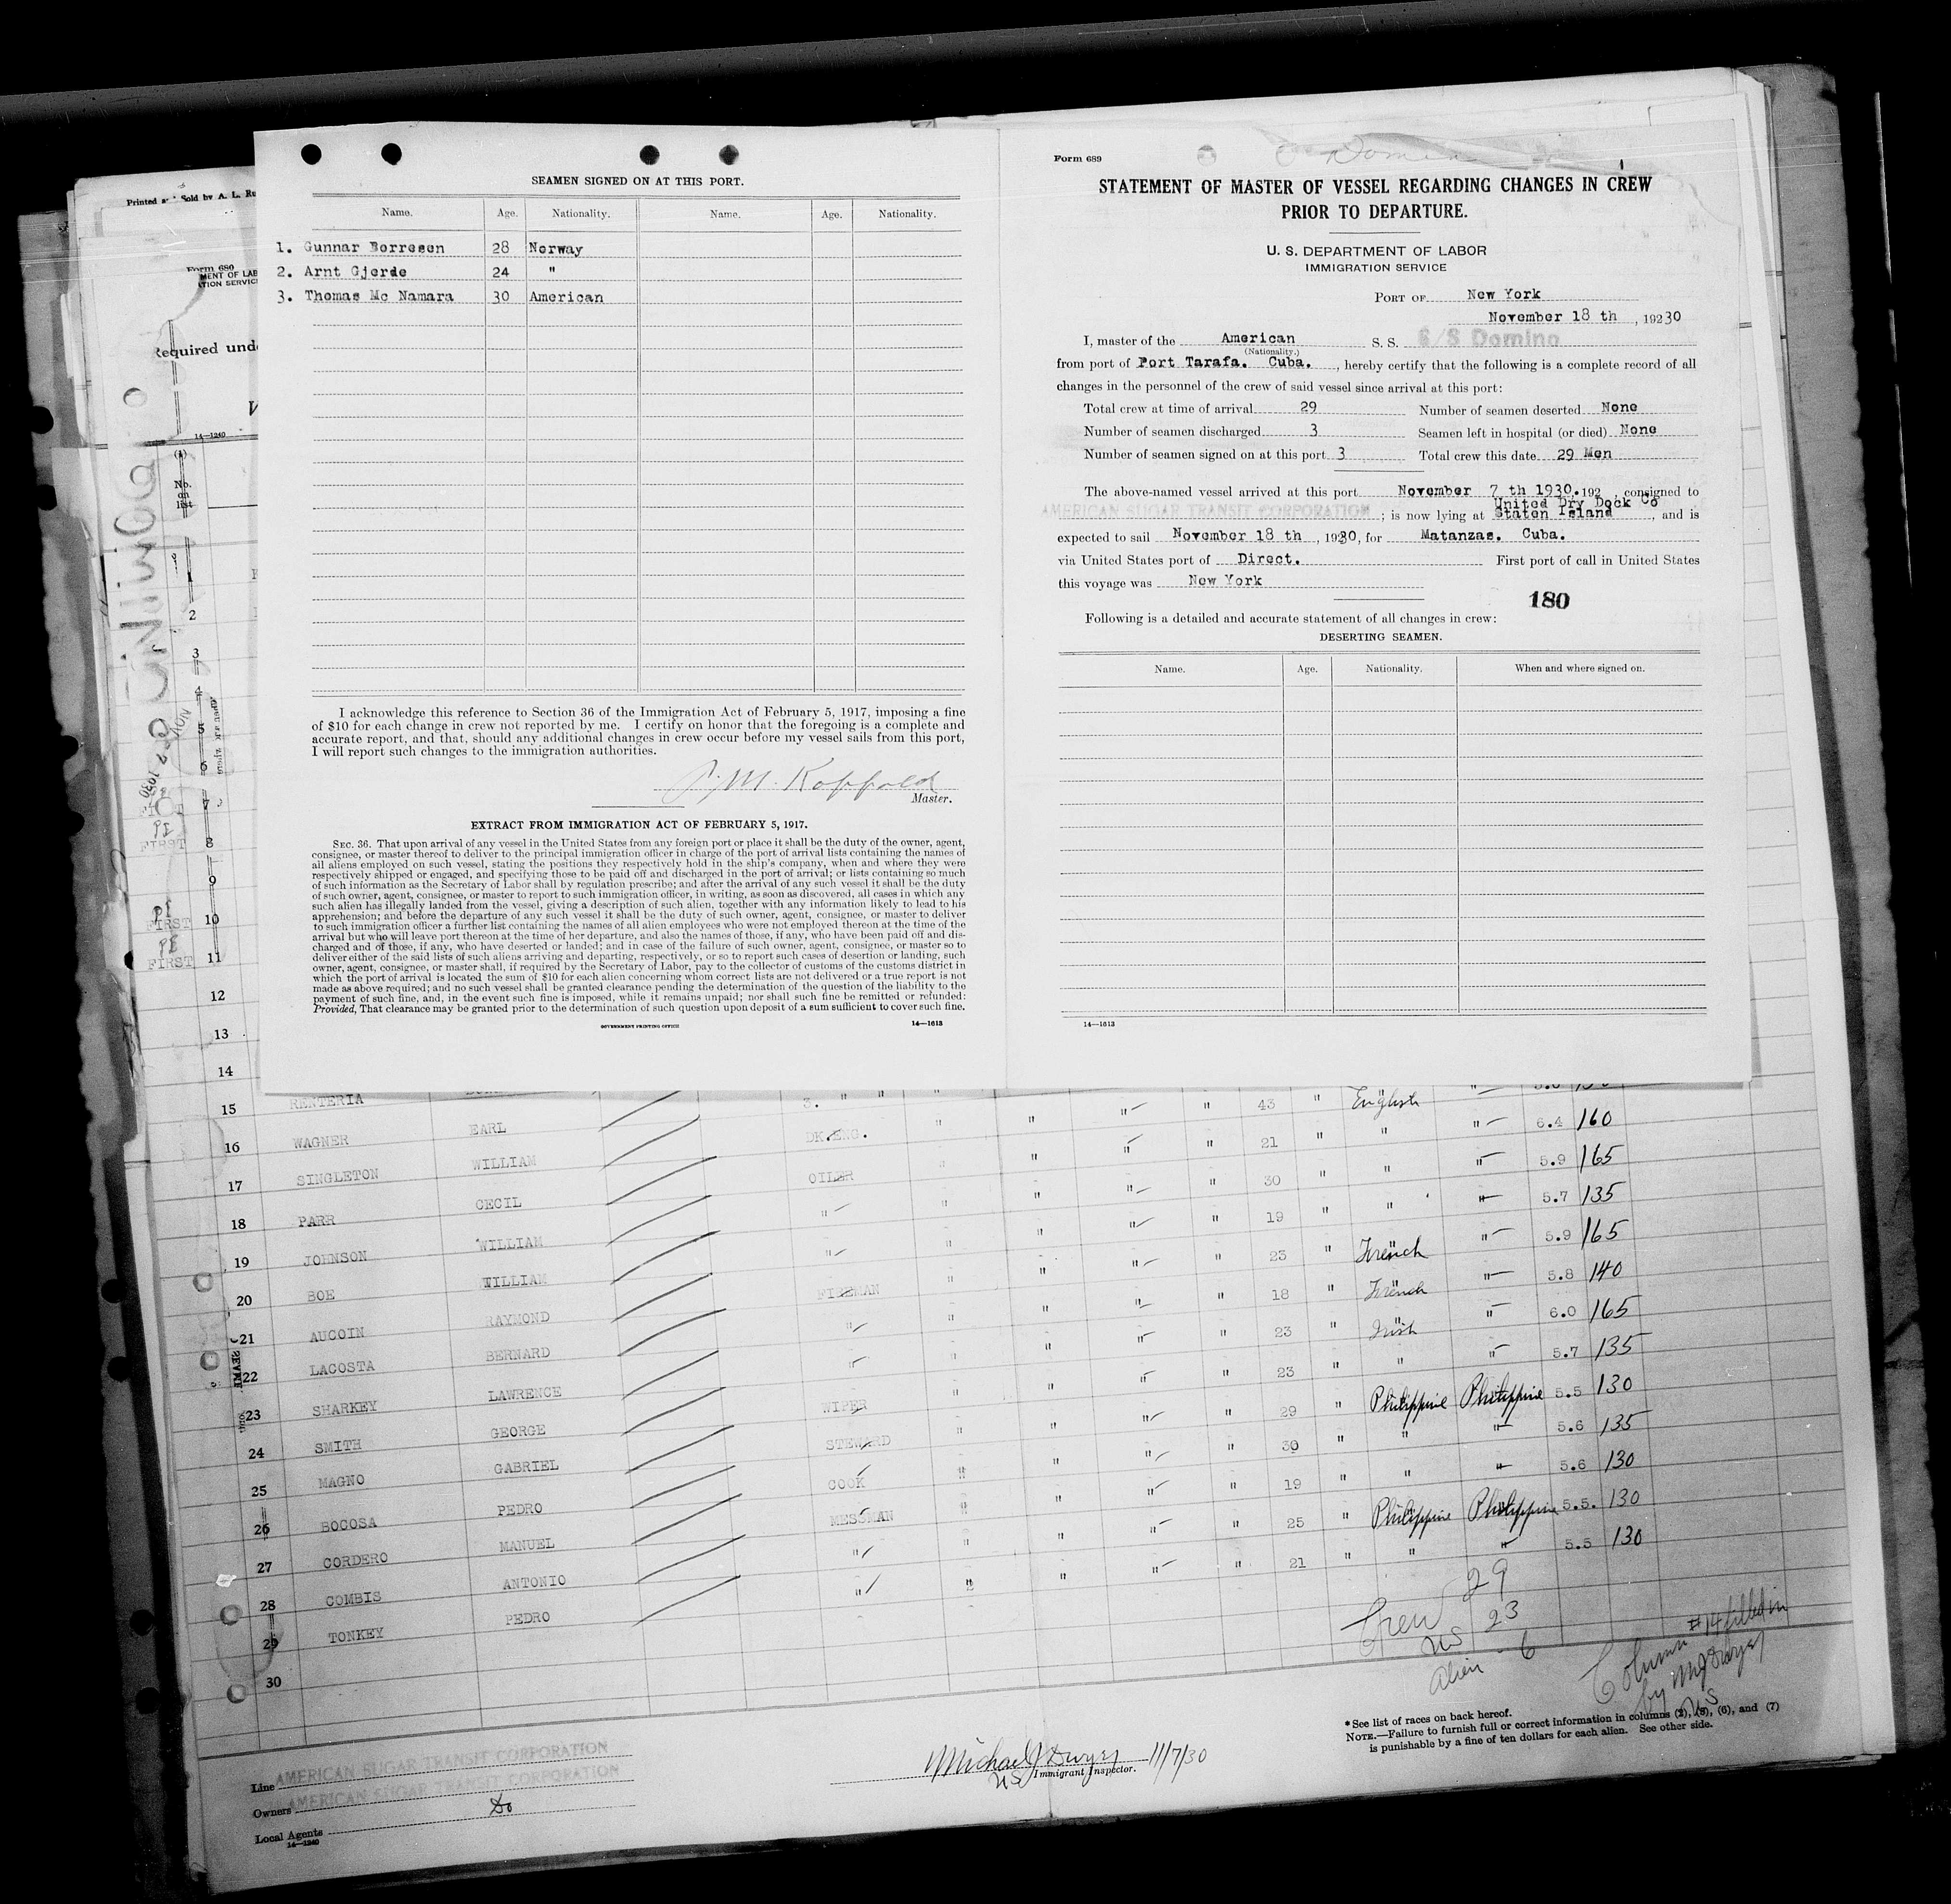 SEAMEN SIGNED ON AT THIS PORT.
Name. Age. Nationality. Name. Age. Nationality.
1. Gunnar Borresen 28 Norway
2. Arnt Gjerde 24 "
3. Thomas Mc Namara 30 American
I acknowledge this reference to Section 36 of the Immigration Act of February 5, 1917, imposing a fine
of $10 for each change in crew not reported by me. I certify on honor that the foregoing is a complete and
accurate report, and that, should any additional changes in crew occur before my vessel sails from this port,
I will report such changes to the immigration authorities.
Master.
EXTRACT FROM IMMIGRATION ACT OF FEBRUARY 5, 1917.
SEC. 36. That upon arrival of any vessel in the United States from any foreign port or place it shall be the duty of the owner, agent,
consignee, or master thereof to deliver to the principal immigration officer in charge of the port of arrival lists containing the names of
all aliens employed on such vessel, stating the positions they respectively hold in the ship's company, when and where they were
respectively shipped or engaged, and specifying those to be paid off and discharged in the port of arrival; or lists containing so much
of such information as the Secretary of Labor shall by regulation prescribe; and after the arrival of any such vessel it shall be the duty
of such owner, agent, consignee, or master to report to such immigration officer, in writing, as soon as discovered, all cases in which any
such alien has illegally landed from the vessel, giving a description of such alien, together with any information likely to lead to his
apprehension; and before the departure of any such vessel it shall be the duty of such owner, agent, consignee, or master to deliver
to such immigration officer a further list containing the names of all alien employees who were not employed thereon at the time of the
arrival but who will leave port thereon at the time of her departure, and also the names of those, if any, who have been paid off and dis-
charged and of those, if any, who have deserted or landed; and in case of the failure of such owner, agent, consignee, or master so to
deliver either of the said lists of such aliens arriving and departing, respectively, or so to report such cases of desertion or landing, such
owner, agent, consignee, or master shall, if required by the Secretary of Labor, pay to the collector of customs of the customs district in
which the port of arrival is located the sum of $10 for each alien concerning whom correct lists are not delivered or a true report is not
made as above required; and no such vessel shall be granted clearance pending the determination of the question of the liability to the
payment of such fine, and, in the event such fine is imposed, while it remains unpaid; nor shall such fine be remitted or refunded:
Provided, That clearance may be granted prior to the determination of such question upon deposit of a sum sufficient to cover such fine.
GOVERNMENT PRINTING OFFICE 14—1613
Form 689
STATEMENT OF MASTER OF VESSEL REGARDING CHANGES IN CREW
PRIOR TO DEPARTURE.
U. S. DEPARTMENT OF LABOR
IMMIGRATION SERVICE
PORT OF New York
November 18 th, 19230
I, master of the American S. S. S/S Domino
(Nationality.)
from port of Port Tarafa. Cuba., hereby certify that the following is a complete record of all
changes in the personnel of the crew of said vessel since arrival at this port:
Total crew at time of arrival 29 Number of seamen deserted None
Number of seamen discharged 3 Seamen left in hospital (or died) None
Number of seamen signed on at this port 3 Total crew this date 29 Men
The above-named vessel arrived at this port November 7 th 1930. 192 , consigned to
United Dry Dock Co
AMERICAN SUGAR TRANSIT CORPORATION ; is now lying at Staten Island, and is
expected to sail November 18 th, 1930, for Matanzas. Cuba.
via United States port of Direct. First port of call in United States
this voyage was New York
180
Following is a detailed and accurate statement of all changes in crew:
DESERTING SEAMEN.
Name. Age. Nationality. When and where signed on.
14—1613
Printed Sold by A. L.
Form 680
Required
14—1240
No. on list
1
2
3
4
5
6
7
8 FIRST
9
10 FIRST
11 FIRST
12
13
14
15 RENTERIA 3. " " " " " " 43 " English "
16 WAGNER EARL DK.ENG. " " " " 21 " " " 6.4 160
17 SINGLETON WILLIAM OILER " " " " 30 " " " 5.9 165
18 PARR CECIL " " " " " 19 " " " 5.7 135
19 JOHNSON WILLIAM " " " " " 23 " French " 5.9 165
20 BOE WILLIAM FIREMAN " " " " 18 " French " 5.8 140
21 AUCOIN RAYMOND " " " " " 23 " Irish " 6.0 165
22 LACOSTA BERNARD " " " " " 23 " " " 5.7 135
23 SHARKEY LAWRENCE WIPER " " " " 29 " Philippine Philippine 5.5 130
24 SMITH GEORGE STEWARD " " " " 30 " " " 5.6 135
25 MAGNO GABRIEL COOK " " " " 19 " " " 5.6 130
26 BOCOSA PEDRO MESSMAN " " " " 25 " Philippine Philippine 5.5. 130
27 CORDERO MANUEL " " " " " 21 " " " 5.5 130
28 COMBIS ANTONIO "
29 TONKEY PEDRO
30
Crew 29
US 23
Alien - 6
Column #14 filled in
by MJ Dwyer
US
*See list of races on back hereof.
NOTE.—Failure to furnish full or correct information in columns (2), (5), (6), and (7)
is punishable by a fine of ten dollars for each alien. See other side.
Michael J Dwyer 11/7/30
US Immigrant Inspector.
Line AMERICAN SUGAR TRANSIT CORPORATION
Owners AMERICAN SUGAR TRANSIT CORPORATION
Local Agents Do
14—1240